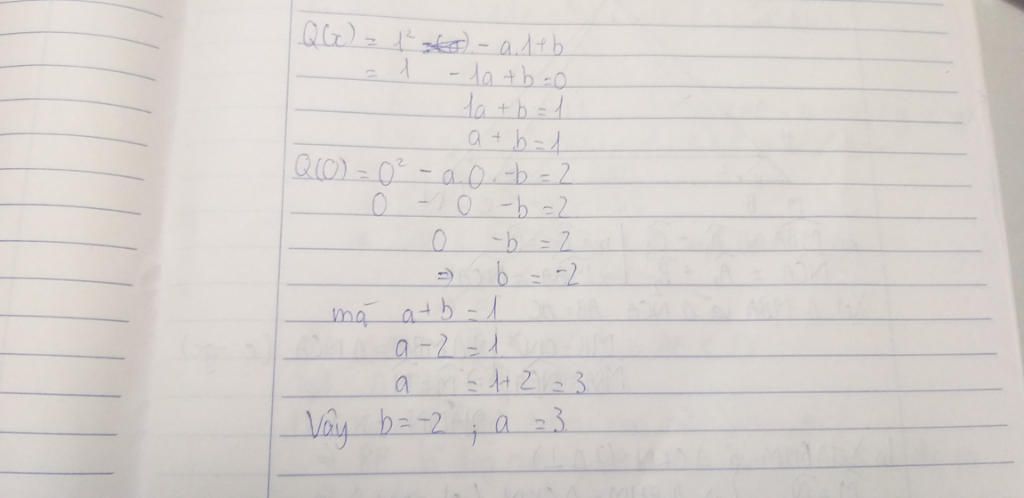 Q(x) = 1² - a.1+b
= 1 - 1a + b = 0
1a + b = 1
a + b = 1
Q(0) = 0² - a.0 - b = 2
0 - 0 - b = 2
0 - b = 2
⇒ b = -2
mà a + b = 1
a - 2 = 1
a = 1 + 2 = 3
Vậy b = -2 ; a = 3